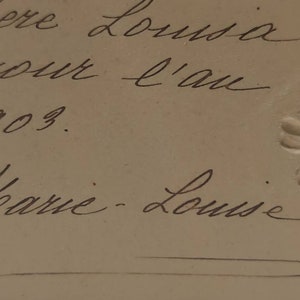 ère Louisa
our l'an
903.
Marie-Louise